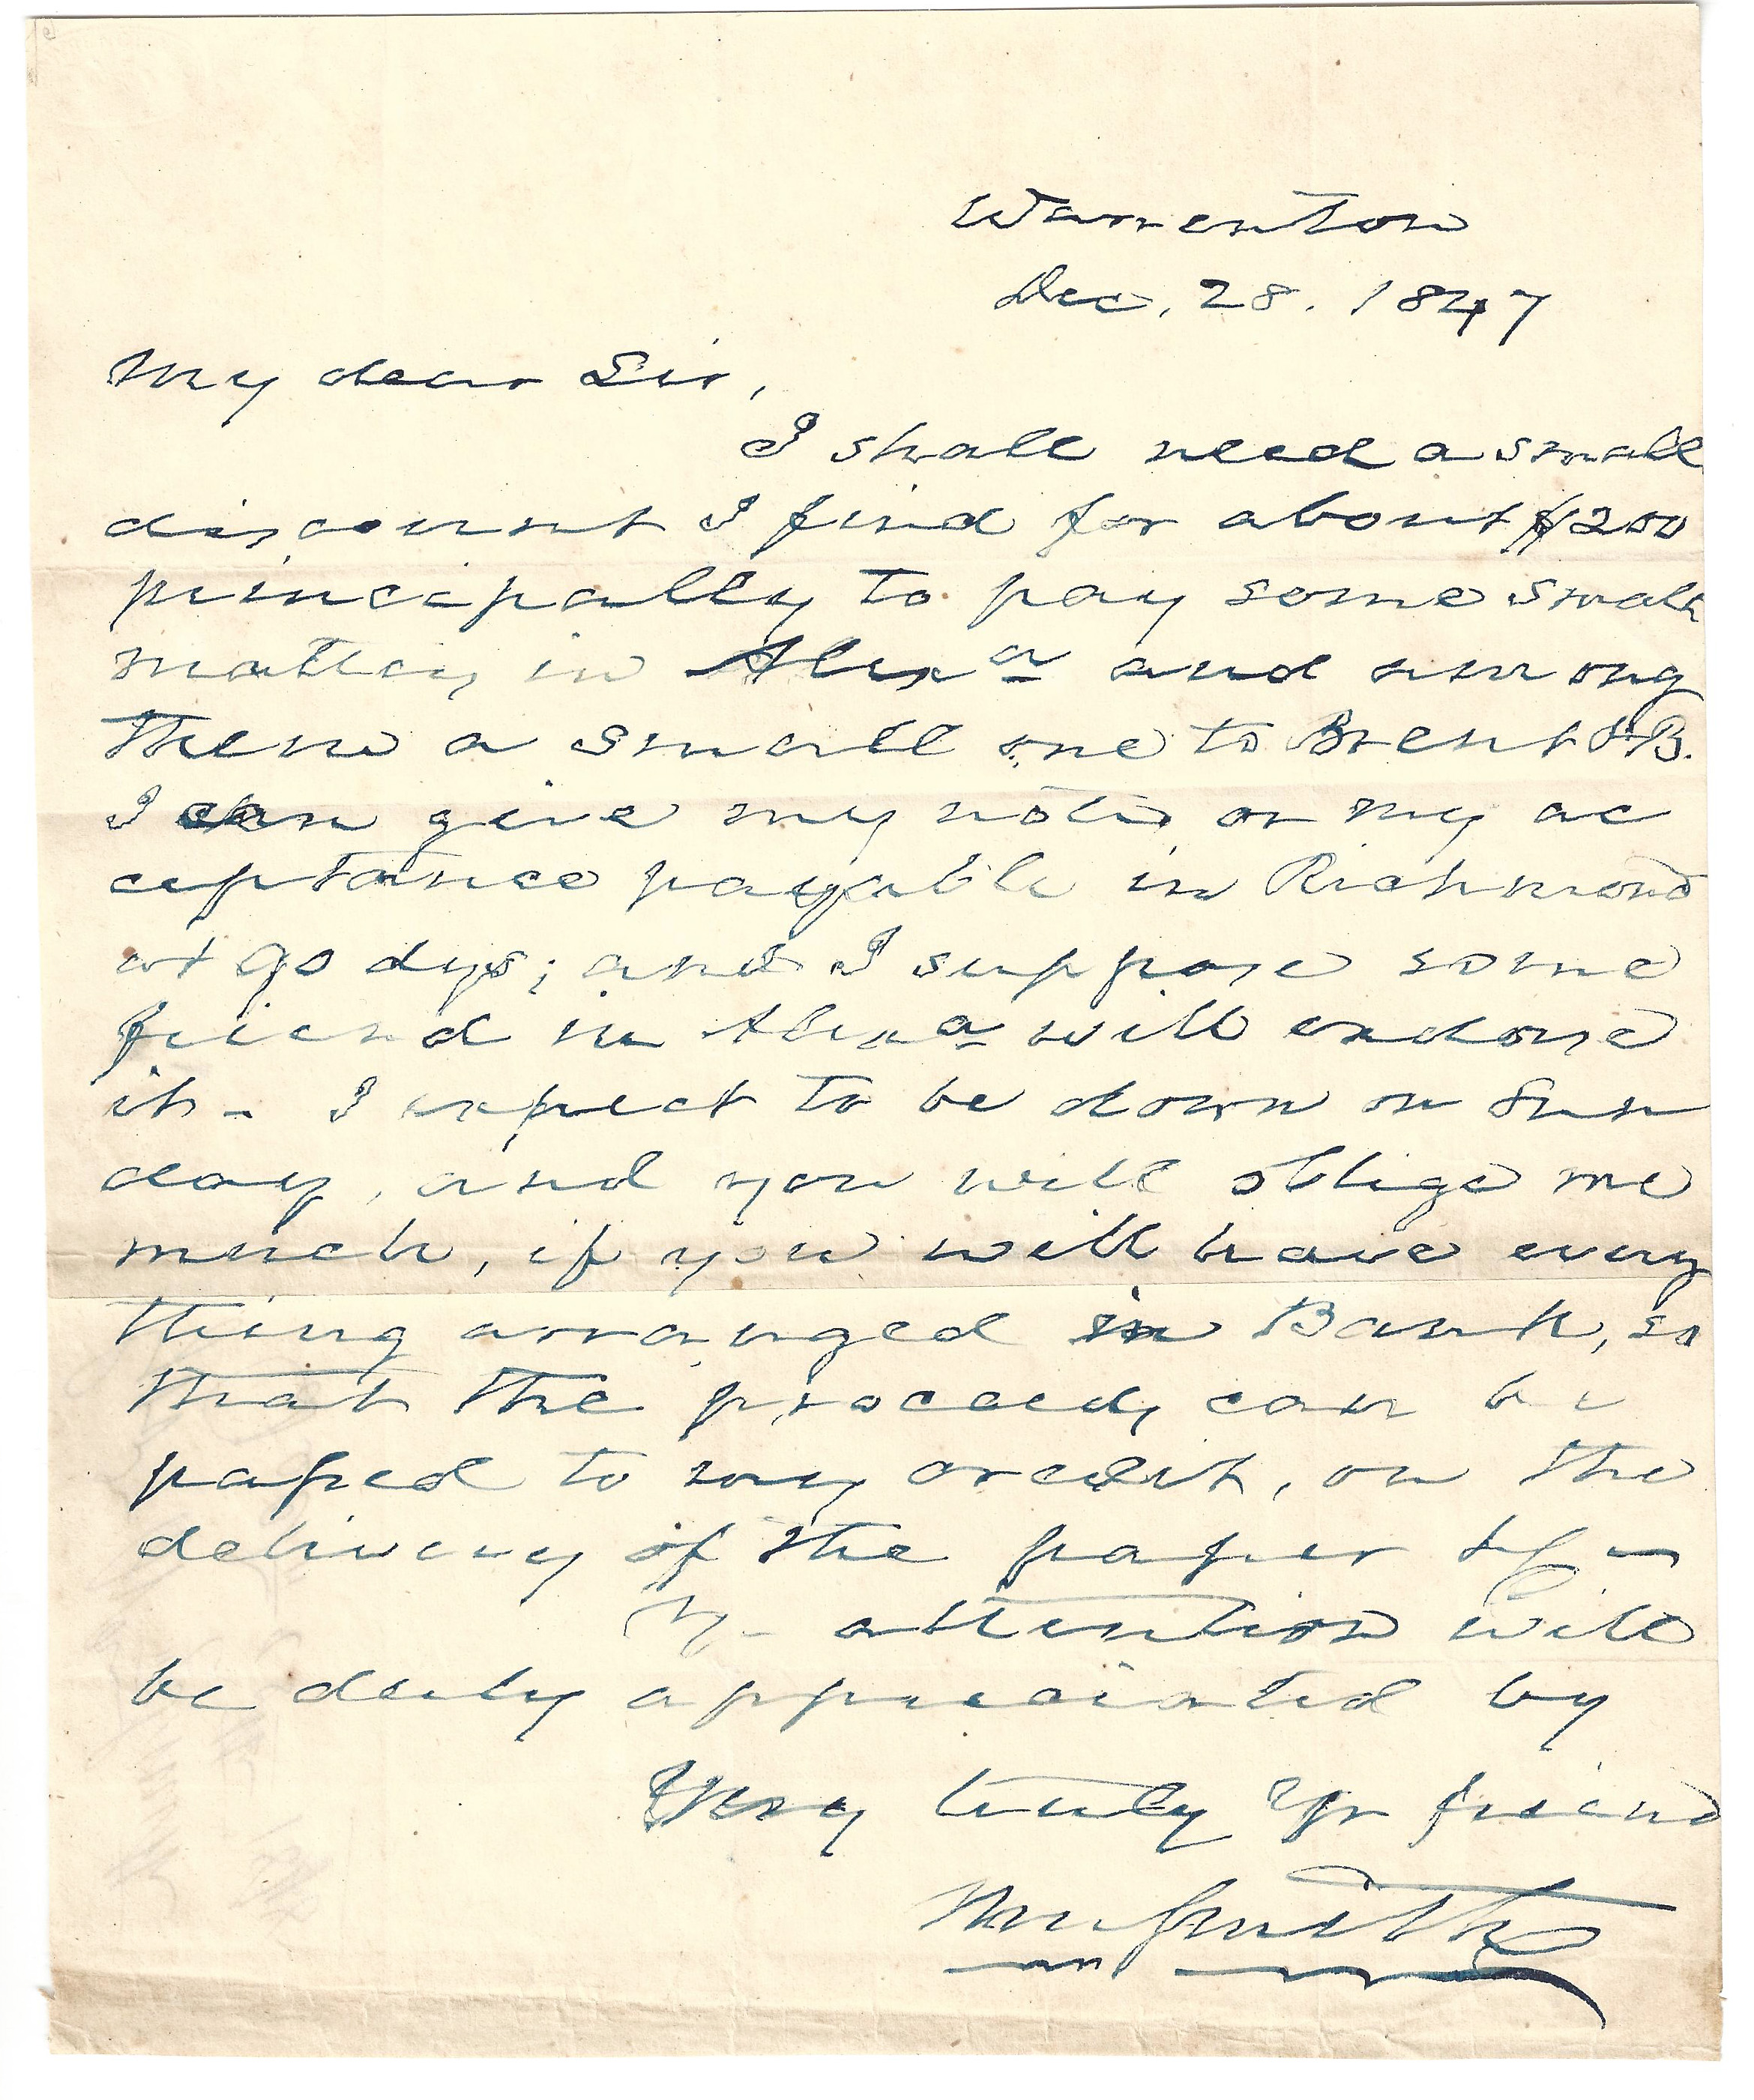 Warrenton
Dec. 28. 1847
My dear Sir,
I shall need a small
discount I find for about $1200
principally to pay some small
matters in Alexa and among
them a small one to Brent & B.
I can give my note, or my ac
ceptance payable in Richmond
at 90 dys; and I suppose some
friend in Alexa will endorse
it - I expect to be down on Sun
day, and you will oblige me
much, if you will have every
thing arranged in Bank, so
that the proceeds can be
passed to my credit, on the
delivery of the paper &c -
Yr attention will
be duly appreciated by
Very truly Yr friend
Wm Smith